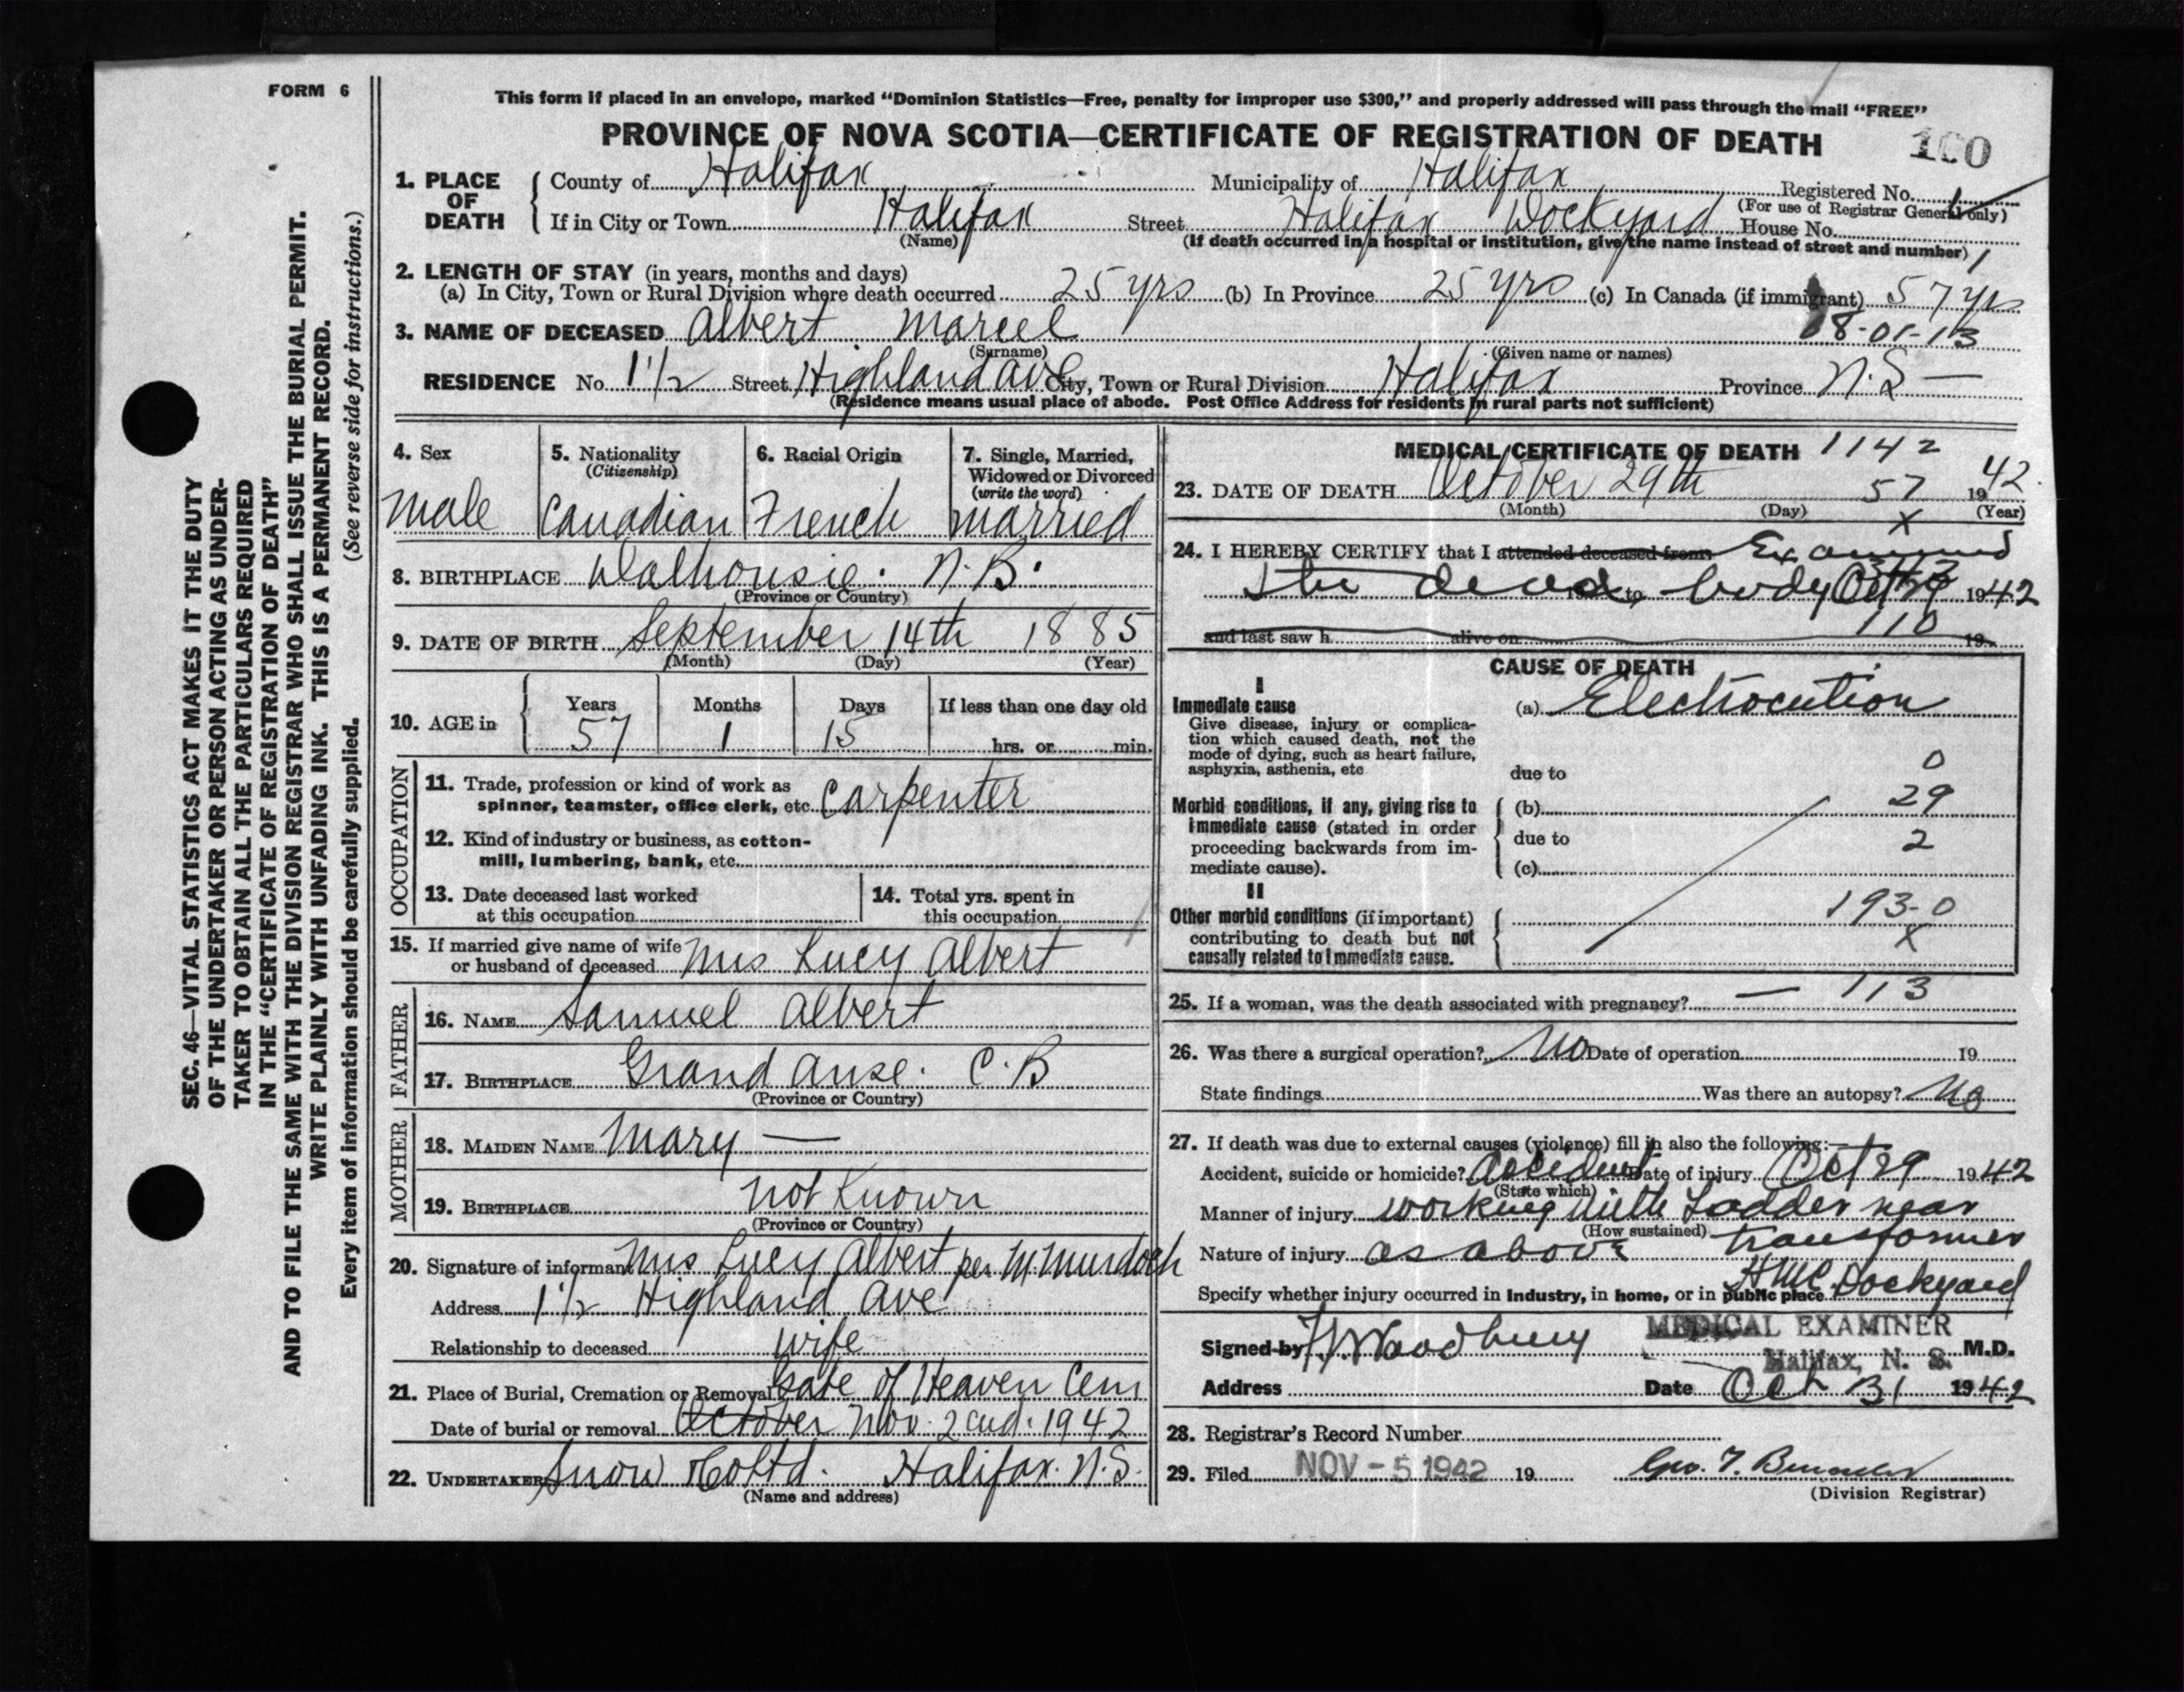 FORM 6
This form if placed in an envelope, marked "Dominion Statistics—Free, penalty for improper use $300," and properly addressed will pass through the mail "FREE"
PROVINCE OF NOVA SCOTIA—CERTIFICATE OF REGISTRATION OF DEATH
100
1. PLACE OF DEATH
County of Halifax Municipality of Halifax Registered No.
(For use of Registrar General only)
If in City or Town Halifax Street Halifax Dockyard House No.
(Name) (If death occurred in a hospital or institution, give the name instead of street and number) 1
2. LENGTH OF STAY (in years, months and days)
(a) In City, Town or Rural Division where death occurred 25 yrs (b) In Province 25 yrs (c) In Canada (if immigrant) 57 yrs
3. NAME OF DECEASED Albert Marcel 08-01-13
(Surname) (Given name or names)
RESIDENCE No. 1 1/2 Street Highland Ave City, Town or Rural Division Halifax Province N.S —
(Residence means usual place of abode. Post Office Address for residents in rural parts not sufficient)
SEC. 46—VITAL STATISTICS ACT MAKES IT THE DUTY
OF THE UNDERTAKER OR PERSON ACTING AS UNDER-
TAKER TO OBTAIN ALL THE PARTICULARS REQUIRED
IN THE "CERTIFICATE OF REGISTRATION OF DEATH"
AND TO FILE THE SAME WITH THE DIVISION REGISTRAR WHO SHALL ISSUE THE BURIAL PERMIT.
WRITE PLAINLY WITH UNFADING INK. THIS IS A PERMANENT RECORD.
Every item of information should be carefully supplied. (See reverse side for instructions.)
4. Sex
Male
5. Nationality
(Citizenship)
Canadian
6. Racial Origin
French
7. Single, Married,
Widowed or Divorced
(write the word)
Married
8. BIRTHPLACE Dalhousie. N.B.
(Province or Country)
9. DATE OF BIRTH September 14th 1885
(Month) (Day) (Year)
10. AGE in
Years Months Days If less than one day old
57 1 15 hrs. or min.
OCCUPATION
11. Trade, profession or kind of work as
spinner, teamster, office clerk, etc. Carpenter
12. Kind of industry or business, as cotton-
mill, lumbering, bank, etc.
13. Date deceased last worked
at this occupation
14. Total yrs. spent in
this occupation
15. If married give name of wife
or husband of deceased Mrs Lucy Albert
FATHER
16. NAME Samuel Albert
17. BIRTHPLACE Grand Anse. C.B
(Province or Country)
MOTHER
18. MAIDEN NAME Mary —
19. BIRTHPLACE not Known
(Province or Country)
20. Signature of informant Mrs Lucy Albert per M. Murdoch
Address 1 1/2 Highland Ave
Relationship to deceased wife
21. Place of Burial, Cremation or Removal Gate of Heaven Cem
Date of burial or removal October Nov. 2nd. 1942
22. UNDERTAKER Snow & Co Ltd. Halifax. N.S.
(Name and address)
MEDICAL CERTIFICATE OF DEATH 1142
23. DATE OF DEATH October 29th 57 1942.
(Month) (Day) (Year)
X
24. I HEREBY CERTIFY that I attended deceased from Examined
the dead to body Oct 29 1942
and last saw h alive on 110 19
CAUSE OF DEATH
I
Immediate cause
Give disease, injury or complica-
tion which caused death, not the
mode of dying, such as heart failure,
asphyxia, asthenia, etc
(a) Electrocution
0
due to
Morbid conditions, if any, giving rise to
immediate cause (stated in order
proceeding backwards from im-
mediate cause).
(b) 29
due to 2
(c)
II
Other morbid conditions (if important)
contributing to death but not
causally related to immediate cause.
193-0
X
25. If a woman, was the death associated with pregnancy? — 113
26. Was there a surgical operation? No Date of operation 19
State findings Was there an autopsy? No
27. If death was due to external causes (violence) fill in also the following:—
Accident, suicide or homicide? Accident Date of injury Oct 29 1942
(State which)
Manner of injury working with Ladder near
(How sustained) transformer
Nature of injury as above
Specify whether injury occurred in industry, in home, or in public place HMC Dockyard
Signed by Woodbury MEDICAL EXAMINER M.D.
Halifax, N. S.
Address Date Oct 31 1942
28. Registrar's Record Number
29. Filed NOV - 5 1942 19
(Division Registrar)